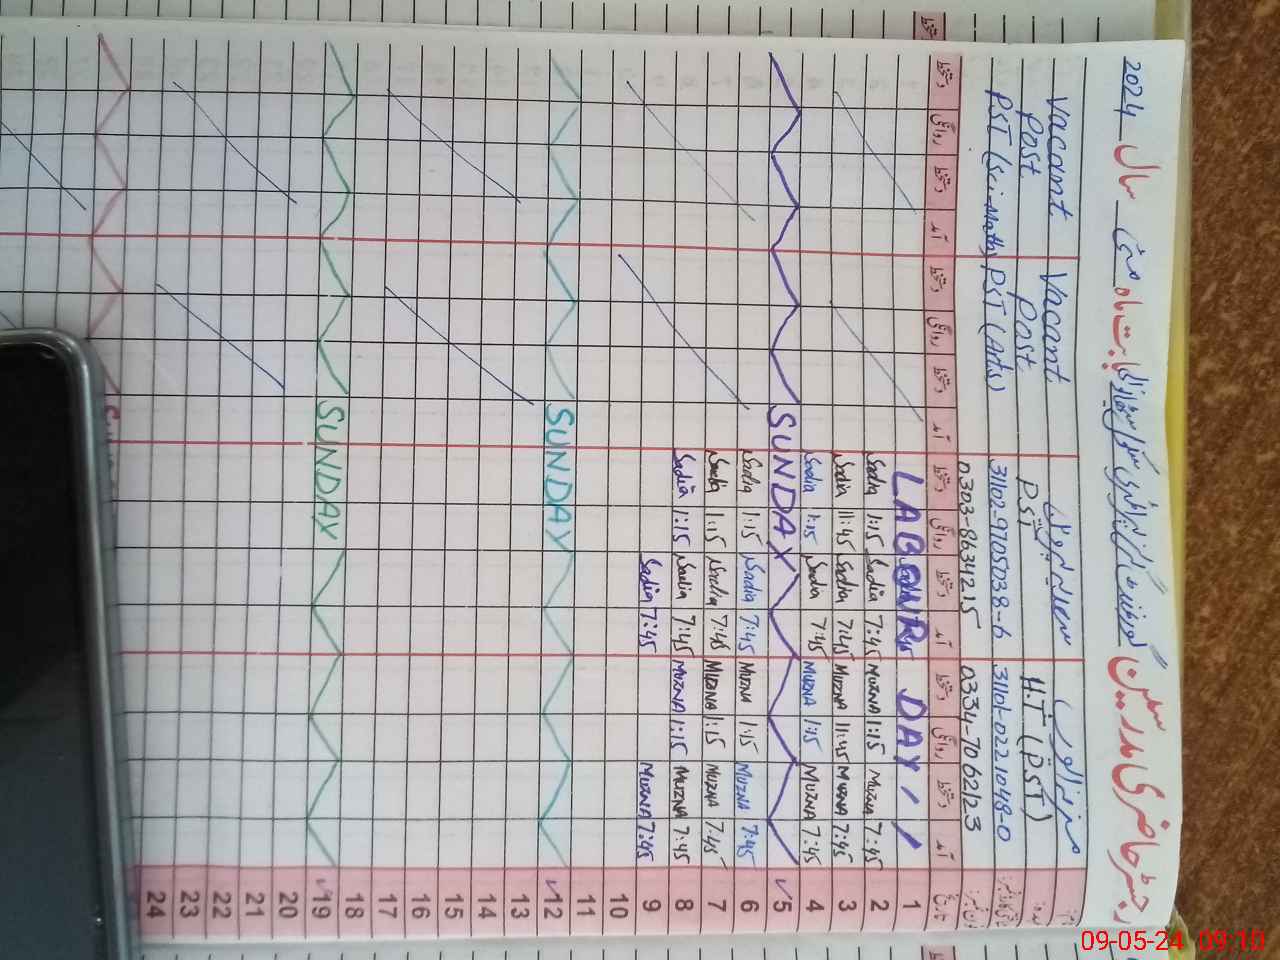 رجسٹر حاضری مدرسین گورنمنٹ گرلز پرائمری سکول بابت ماہ مئی سال 2024
مسز زاہورب H.T (PST) 31101-0221048-0 0334-7062123
PST 31102-9705038-6 0303-8634215
Vacant Post PST (Arts)
Vacant Post PST (Sci-Math)
تاریخ آمد دستخط روانگی دستخط آمد دستخط روانگی دستخط آمد دستخط روانگی دستخط آمد دستخط روانگی دستخط
1 LABOUR DAY
2 7:45 Muzna 1:15 Muzna 7:45 Sadia 1:15 Sadia
3 7:45 Muzna 11:45 Muzna 7:45 Sadia 11:45 Sadia
4 7:45 Muzna 1:15 Muzna 7:45 Sadia 1:15 Sadia
5 SUNDAY
6 7:45 Muzna 1:15 Muzna 7:45 Sadia 1:15 Sadia
7 7:45 Muzna 1:15 Muzna 7:45 Sadia 1:15 Sadia
8 7:45 Muzna 1:15 Muzna 7:45 Sadia 1:15 Sadia
9 7:45 Muzna 7:45 Sadia
10
11
12 SUNDAY
13
14
15
16
17
18
19 SUNDAY
20
21
22
23
24
09-05-24 09:10